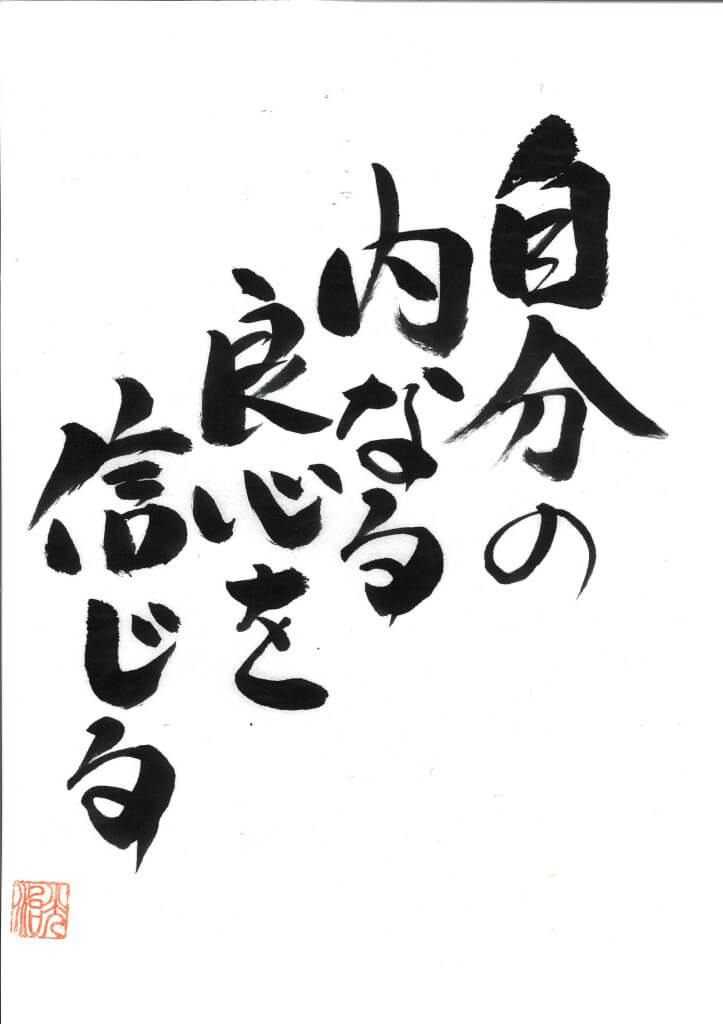 自分の
内なる
良心を
信じる